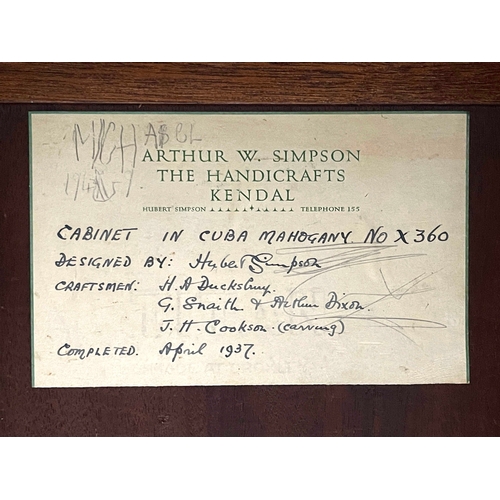 ARTHUR W. SIMPSON
THE HANDICRAFTS
KENDAL
HUBERT SIMPSON TELEPHONE 155
CABINET IN CUBA MAHOGANY. NO X 360
DESIGNED BY: Hubert Simpson
CRAFTSMEN: H. A Ducksbury.
G. Snaith & Arthur Dixon.
J. H. Cookson (carving)
COMPLETED. April 1937.